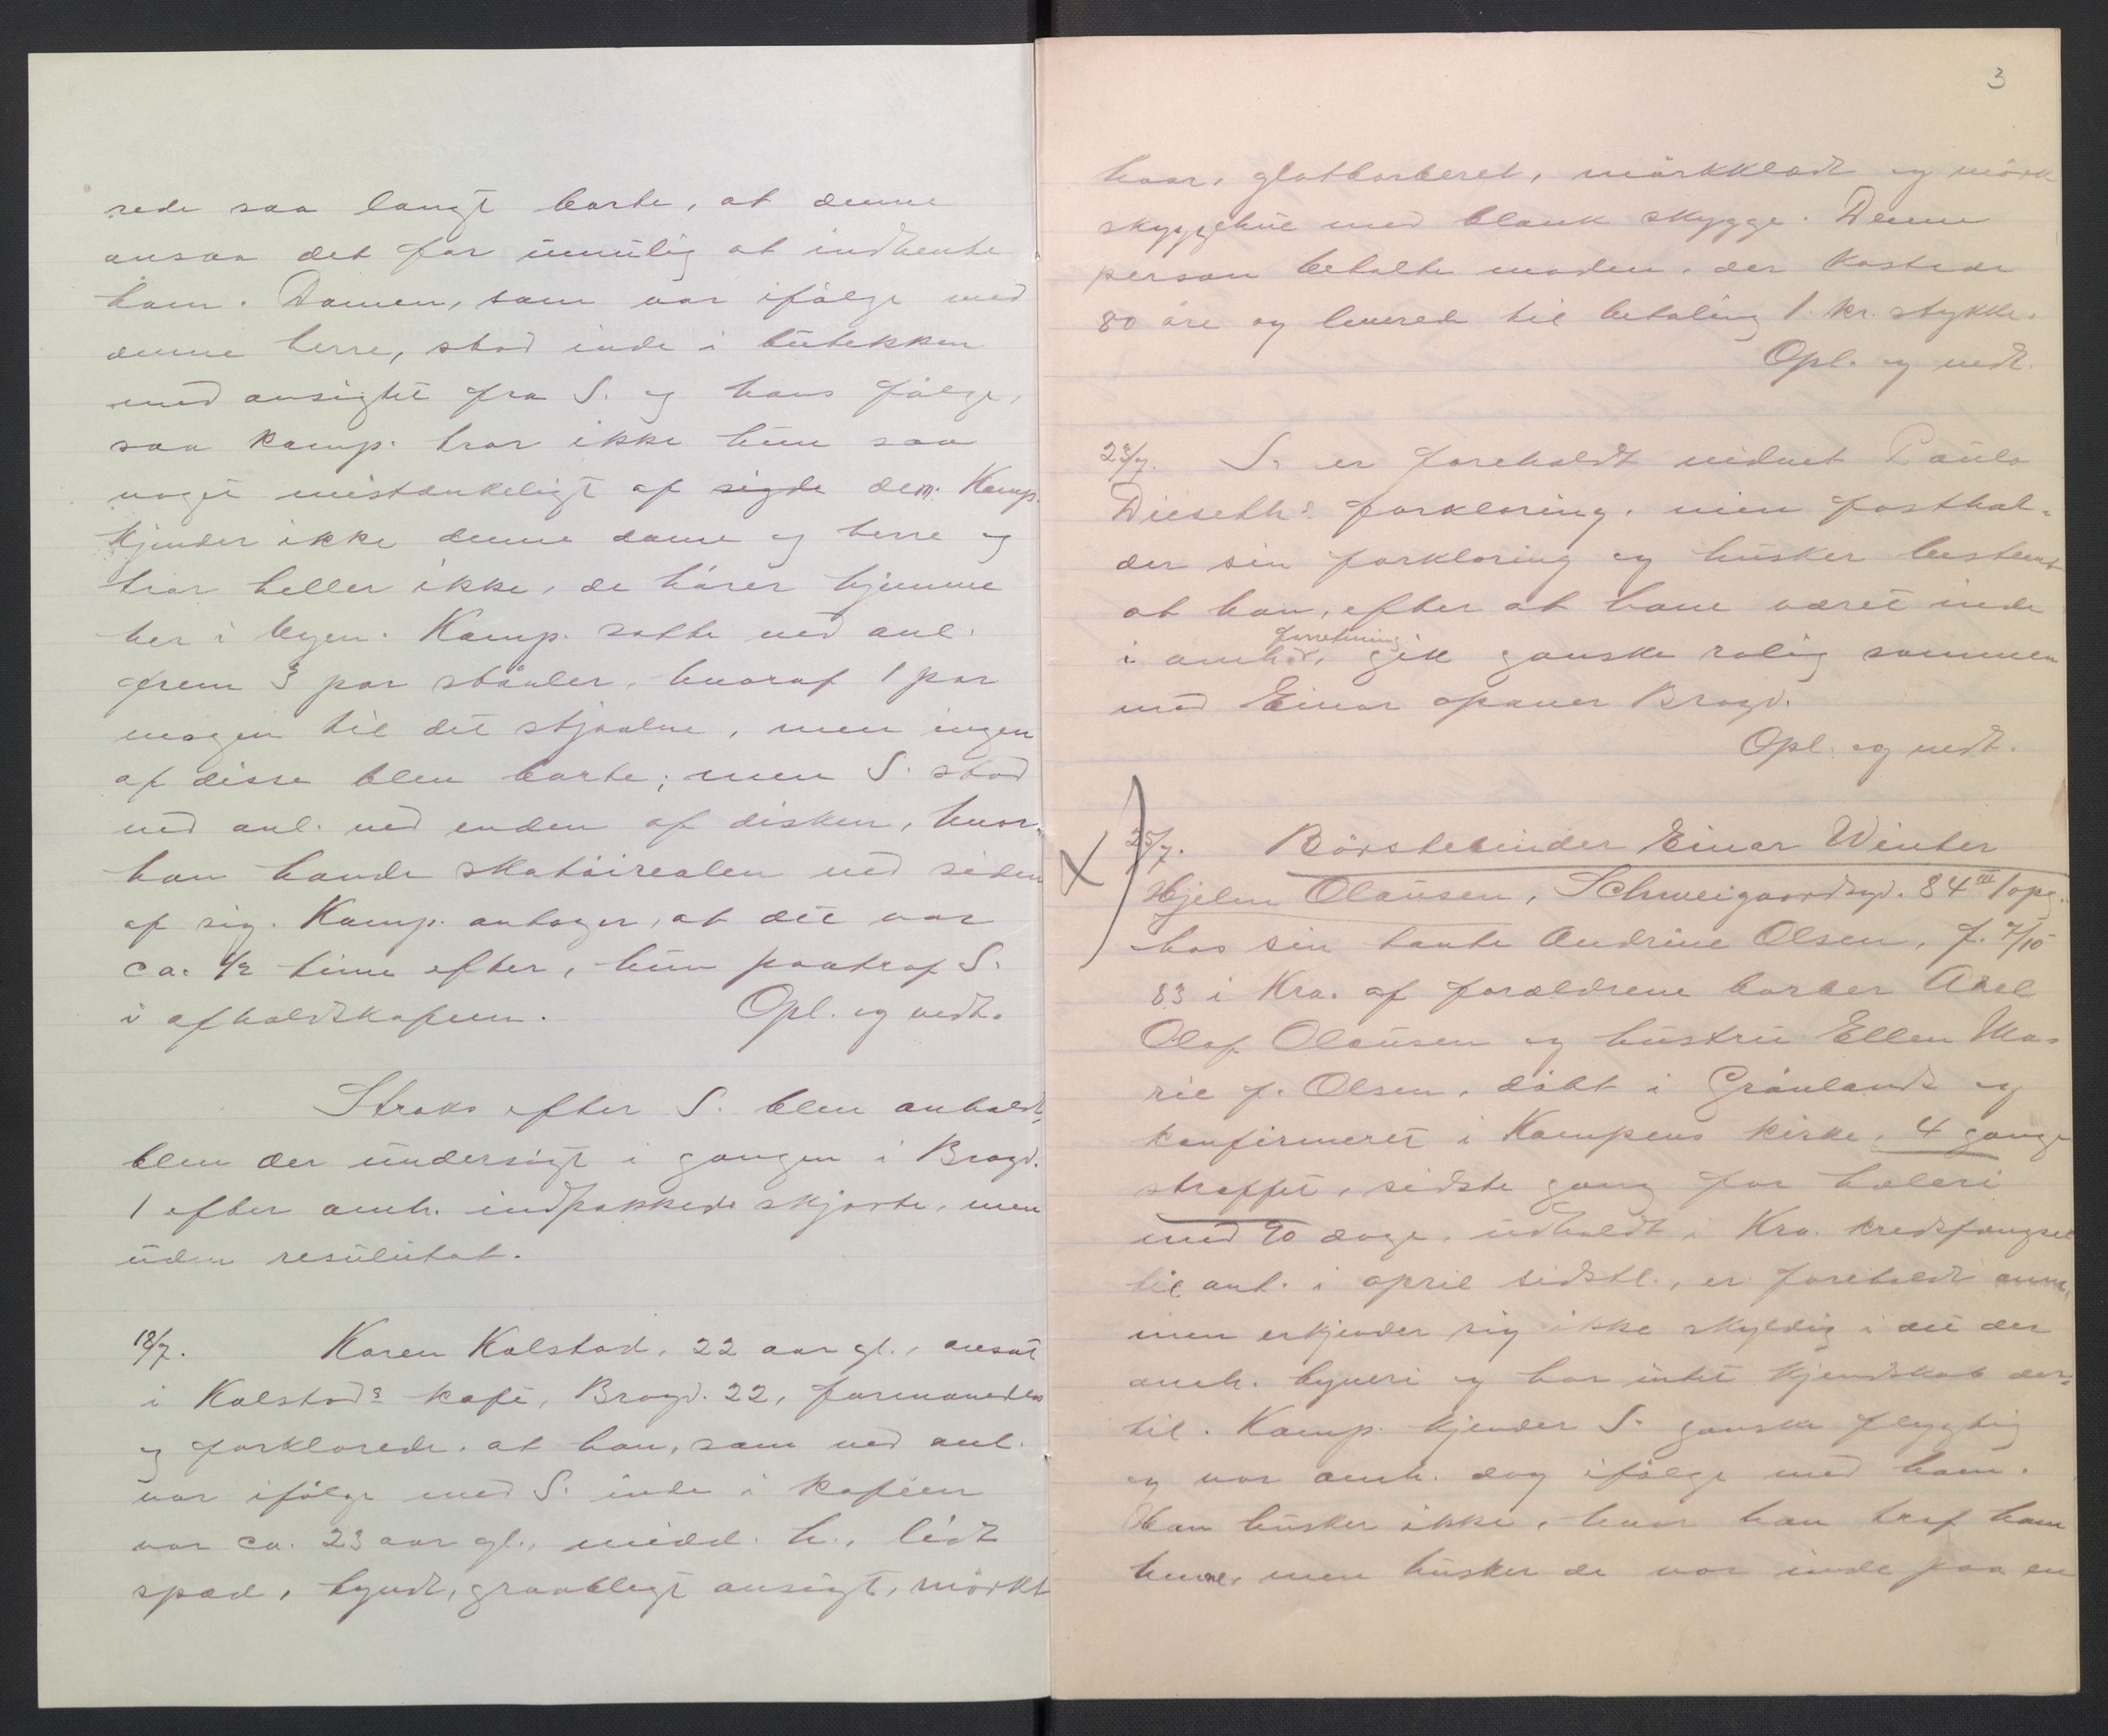 rede saa langt borte, at denne
ansaa det for umulig at indhente
ham. Damen, som var ifølge med
denne herre, stod inde i butikken
med ansigtet fra S. og hans følge,
saa Komp. tror ikke hun saa
noget mistænkeligt af sigde dem. Komp.
kjender ikke denne dame og herre og
tror heller ikke, de hører hjemme
her i byen. Komp. satte ved anl.
frem 3 par støvler, hvoraf 1 par
magen til det stjaalne, men ingen
af disse blev borte; men S. stod
ved anl. ved enden af disken, hvor
han havde skotøirealen ved siden
af sig. Komp. antager, at det var
ca. 1/2 time efter, hun paatraf S.
i afholdskafeen. Opl. og vedt.
Straks efter S. blev anholdt,
blev der undersøgt i gangen i Brogd.
1 efter anh. indpakkede skjorte, men
uden resulutat.
18/7. Karen Kolstad, 22 aar gl., ansat
i Kolstads kafe, Brogd. 22, formanedes
og forklarede, at han, som ved anl.
var ifølge med S. inde i kafeen
var ca. 23 aar gl., midd. h., lidt
spæd, tyndt, graablegt ansigt, mørkt
3
haar, glatbarberet, mørkklædt og mørk
skyggehue med blank skygge. Denne
person betalte maden, der kostede
80 øre og leverede til betaling 1 kr. stykke.
Opl. og vedt.
23/7. S. er foreholdt vidnet Pauls
Dieseths forklaring, men fasthol-
der sin forklaring og husker bestemt
at han, efter at have været inde
forretning
i anh. gik ganske rolig sammen
med Einar opover Brogd.
Opl. og vedt.
25/7. Børstebinder Einar Winter
Hjelm Olausen, Schweigaardsgd. 84 III opg.
hos sin tante Andrine Olsen, f. 7/10
83 i Kra. af forældrene barber Axel
Olaf Olausen og hustru Ellen Ma-
rie f. Olsen, døbt i Grønlands og
konfirmeret i Kampens kirke, 4 gange
straffet, sidste gang for hæleri
med 90 dage, udholdt i Kra. kredsfængsel
til ant. i april sidstl., er foreholdt anm.,
men erkjender sig ikke skyldig i det der
anh. tyveri og har intet kjendskab der-
til. Komp. kjender S. ganske flygtig
og var anh. dag ifølge med ham.
Han husker ikke, hvor han traf ham
henne, men husker de var inde paa en